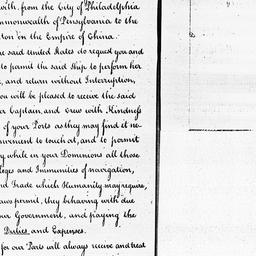 with, from the City of Philadelphia
mmonwealth of Pensylvania to the
ton in the Empire of China.
he said United States do request you and
to permit the said Ship to perform her
, and return without Interruption,
ou will be pleased to receive the said
er Captain, and crew with Kindness
of your Ports as they may find it ne-
onvenient to touch at, and to permit
y while in your Dominions all those
leges and Immunities of navigation,
nd Trade which Humanity may require,
aws permit, they behaving with due
our Government, and paying the
Duties and Expenses.
for our Parts will always receive and treat